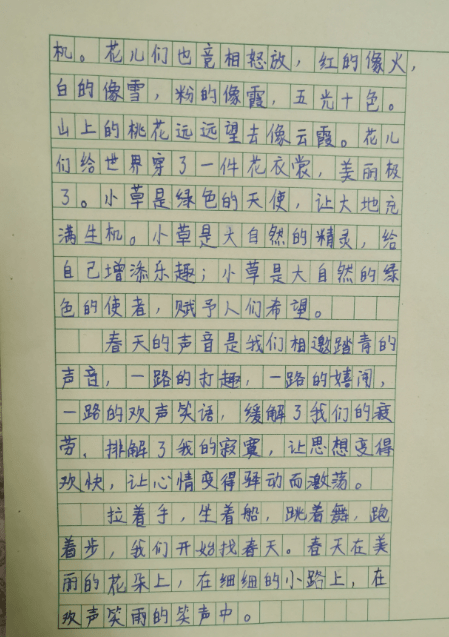 机。花儿们也竞相怒放，红的像火，
白的像雪，粉的像霞，五光十色。
山上的桃花远远望去像云霞。花儿
们给世界穿了一件花衣裳，美丽极
了。小草是绿色的天使，让大地充
满生机。小草是大自然的精灵，给
自己增添乐趣；小草是大自然的绿
色的使者，赋予人们希望。
春天的声音是我们相邀踏青的
声音，一路的打趣，一路的嬉闹，
一路的欢声笑语，缓解了我们的疲
劳，排解了我的寂寞，让思想变得
欢快，让心情变得驿动而激荡。
拉着手，坐着船，跳着舞，跑
着步，我们开始找春天。春天在美
丽的花朵上，在细细的小路上，在
欢声笑雨的笑声中。